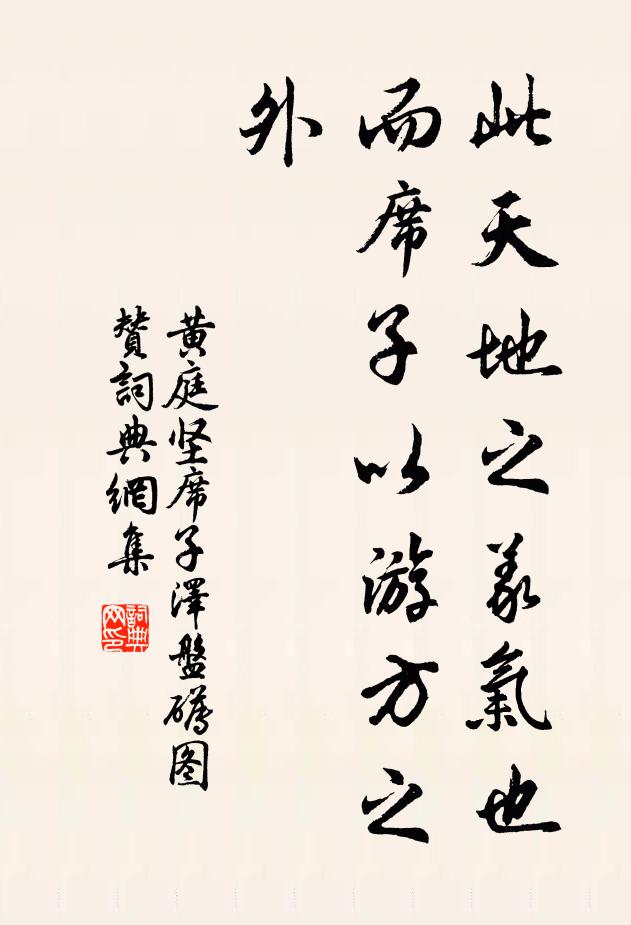 此天地之義氣也
而席子以游方之
外
黄庭坚席子澤盤礴图
賛詞典網集
詞典
网印